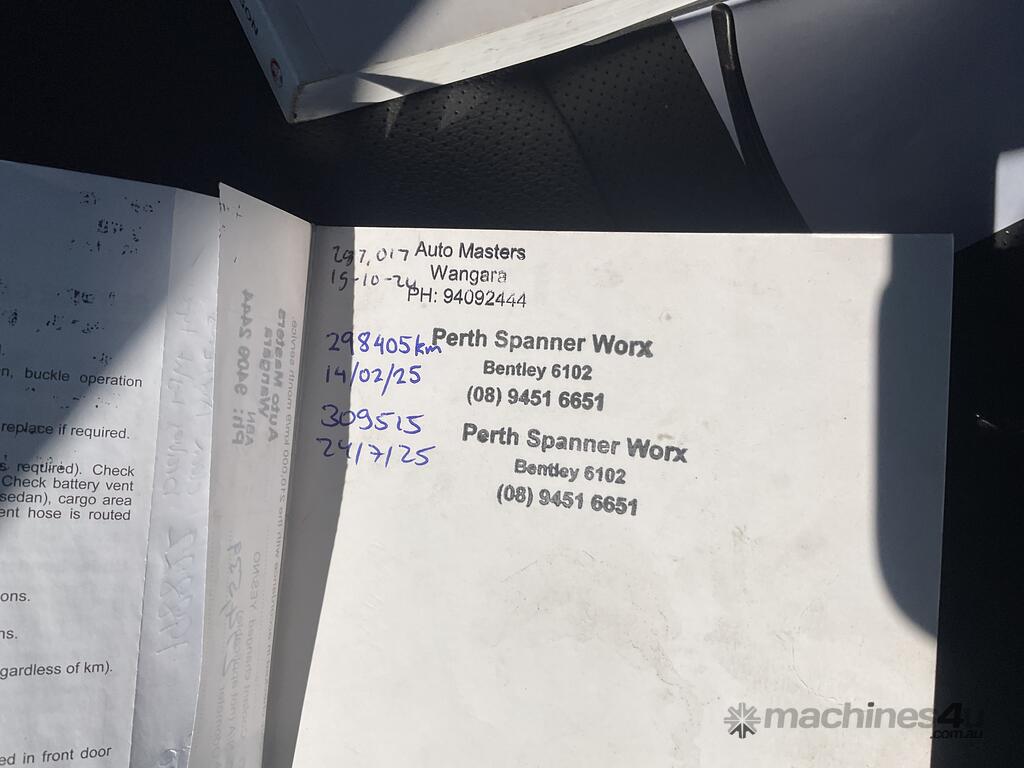 297,017 Auto Masters
15-10-24 Wangara
PH: 94092444
298405km Perth Spanner Worx
14/02/25 Bentley 6102
(08) 9451 6651
309515 Perth Spanner Worx
24/7/25 Bentley 6102
(08) 9451 6651
n, buckle operation
replace if required.
s required). Check
Check battery vent
sedan), cargo area
ent hose is routed
ons.
ns.
gardless of km).
ed in front door
machines4u
.com.au